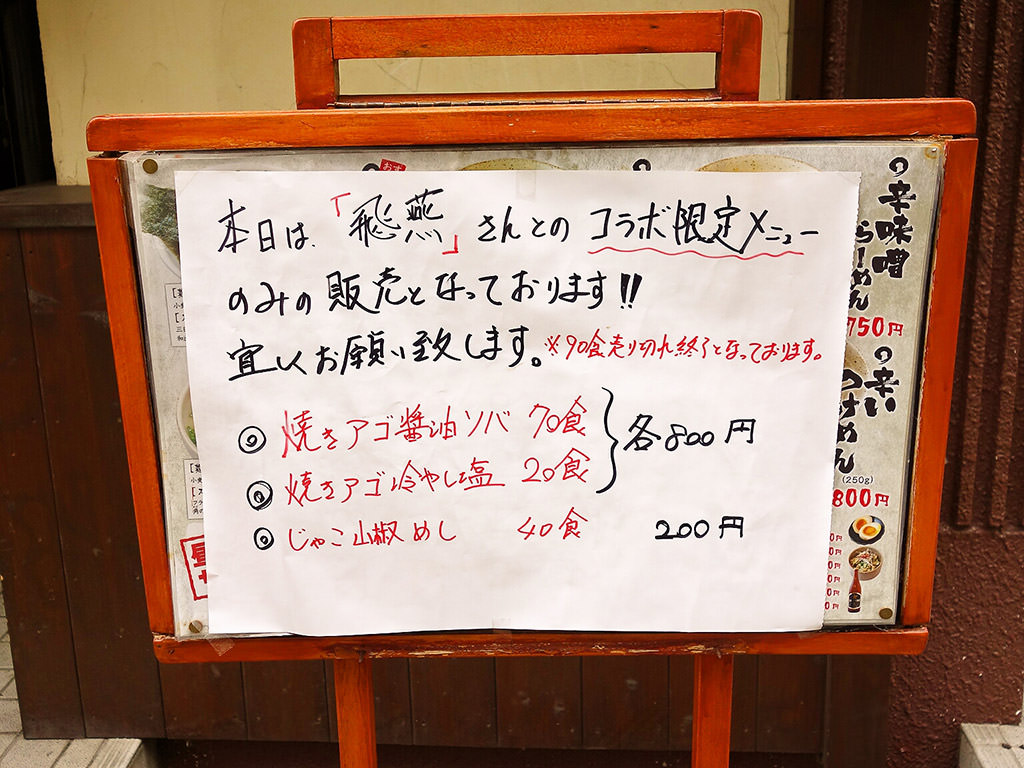 本日は、「飛燕」さんとのコラボ限定メニュー
のみの販売となっております!!
宜しくお願い致します。※90食売り切れ終了となっております。
◎焼きアゴ醤油ソバ 70食
◎焼きアゴ冷やし塩 20食
各800円
◎じゃこ山椒めし 40食 200円
辛味噌
らーめん
750円
辛い
つけめん
(250g)
800円